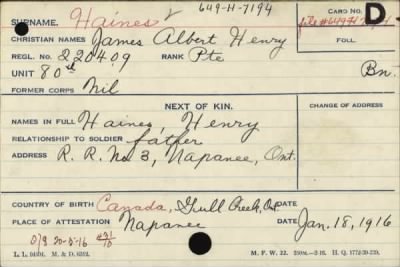 649-H-7194
CARD NO.
SURNAME. Haines
file 649-H-
D
CHRISTIAN NAMES James Albert Henry
FOLL.
REGL. NO. 220409 RANK Pte
UNIT 80th Bn.
FORMER CORPS Nil
NEXT OF KIN.
CHANGE OF ADDRESS
NAMES IN FULL Haines, Henry
RELATIONSHIP TO SOLDIER father
ADDRESS R. R. No 3, Napanee, Ont.
COUNTRY OF BIRTH Canada, Gull Creek, Ont DATE
PLACE OF ATTESTATION Napanee DATE Jan. 18, 1916
O/S 20-5-16
M. F. W. 22. H. Q. 1772-39-